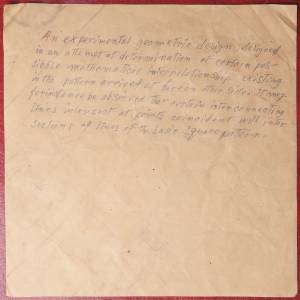 An experimental geometric design, designed
in an attempt at determination of certain pos-
sible mathematical interrelationship existing
in the pattern arrived at on other side. It may
for instance be observed that certain interconnecting
lines intersect at points coincident with inter
sections of lines of the basic square pattern.